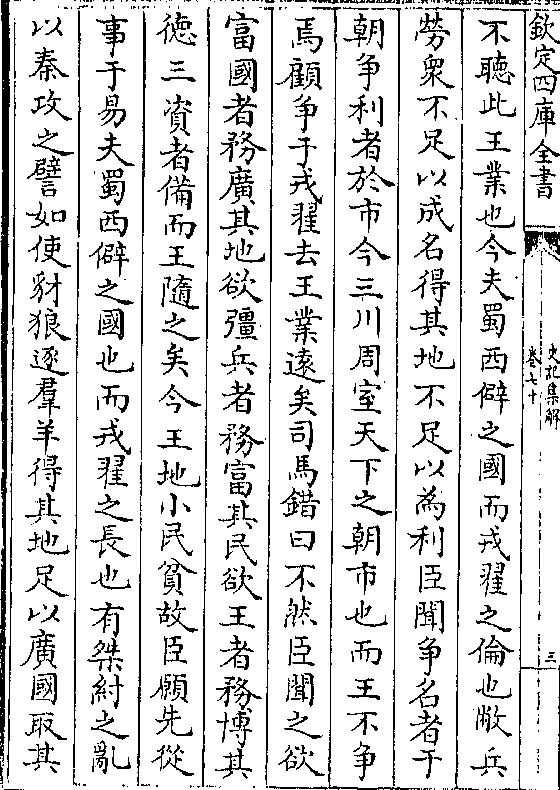 欽定四庫全書
史記集解
卷七十
三
不聽此王業也今夫蜀西僻之國而戎翟之倫也敝兵
勞衆不足以成名得其地不足以為利臣聞争名者于
朝争利者於市今三川周室天下之朝市也而王不争
焉顧争于戎翟去王業逺矣司馬錯曰不然臣聞之欲
富國者務廣其地欲彊兵者務富其民欲王者務博其
徳三資者備而王隨之矣今王地小民貧故臣願先從
事于易夫蜀西僻之國也而戎翟之長也有桀紂之亂
以秦攻之譬如使豺狼逐羣羊得其地足以廣國取其